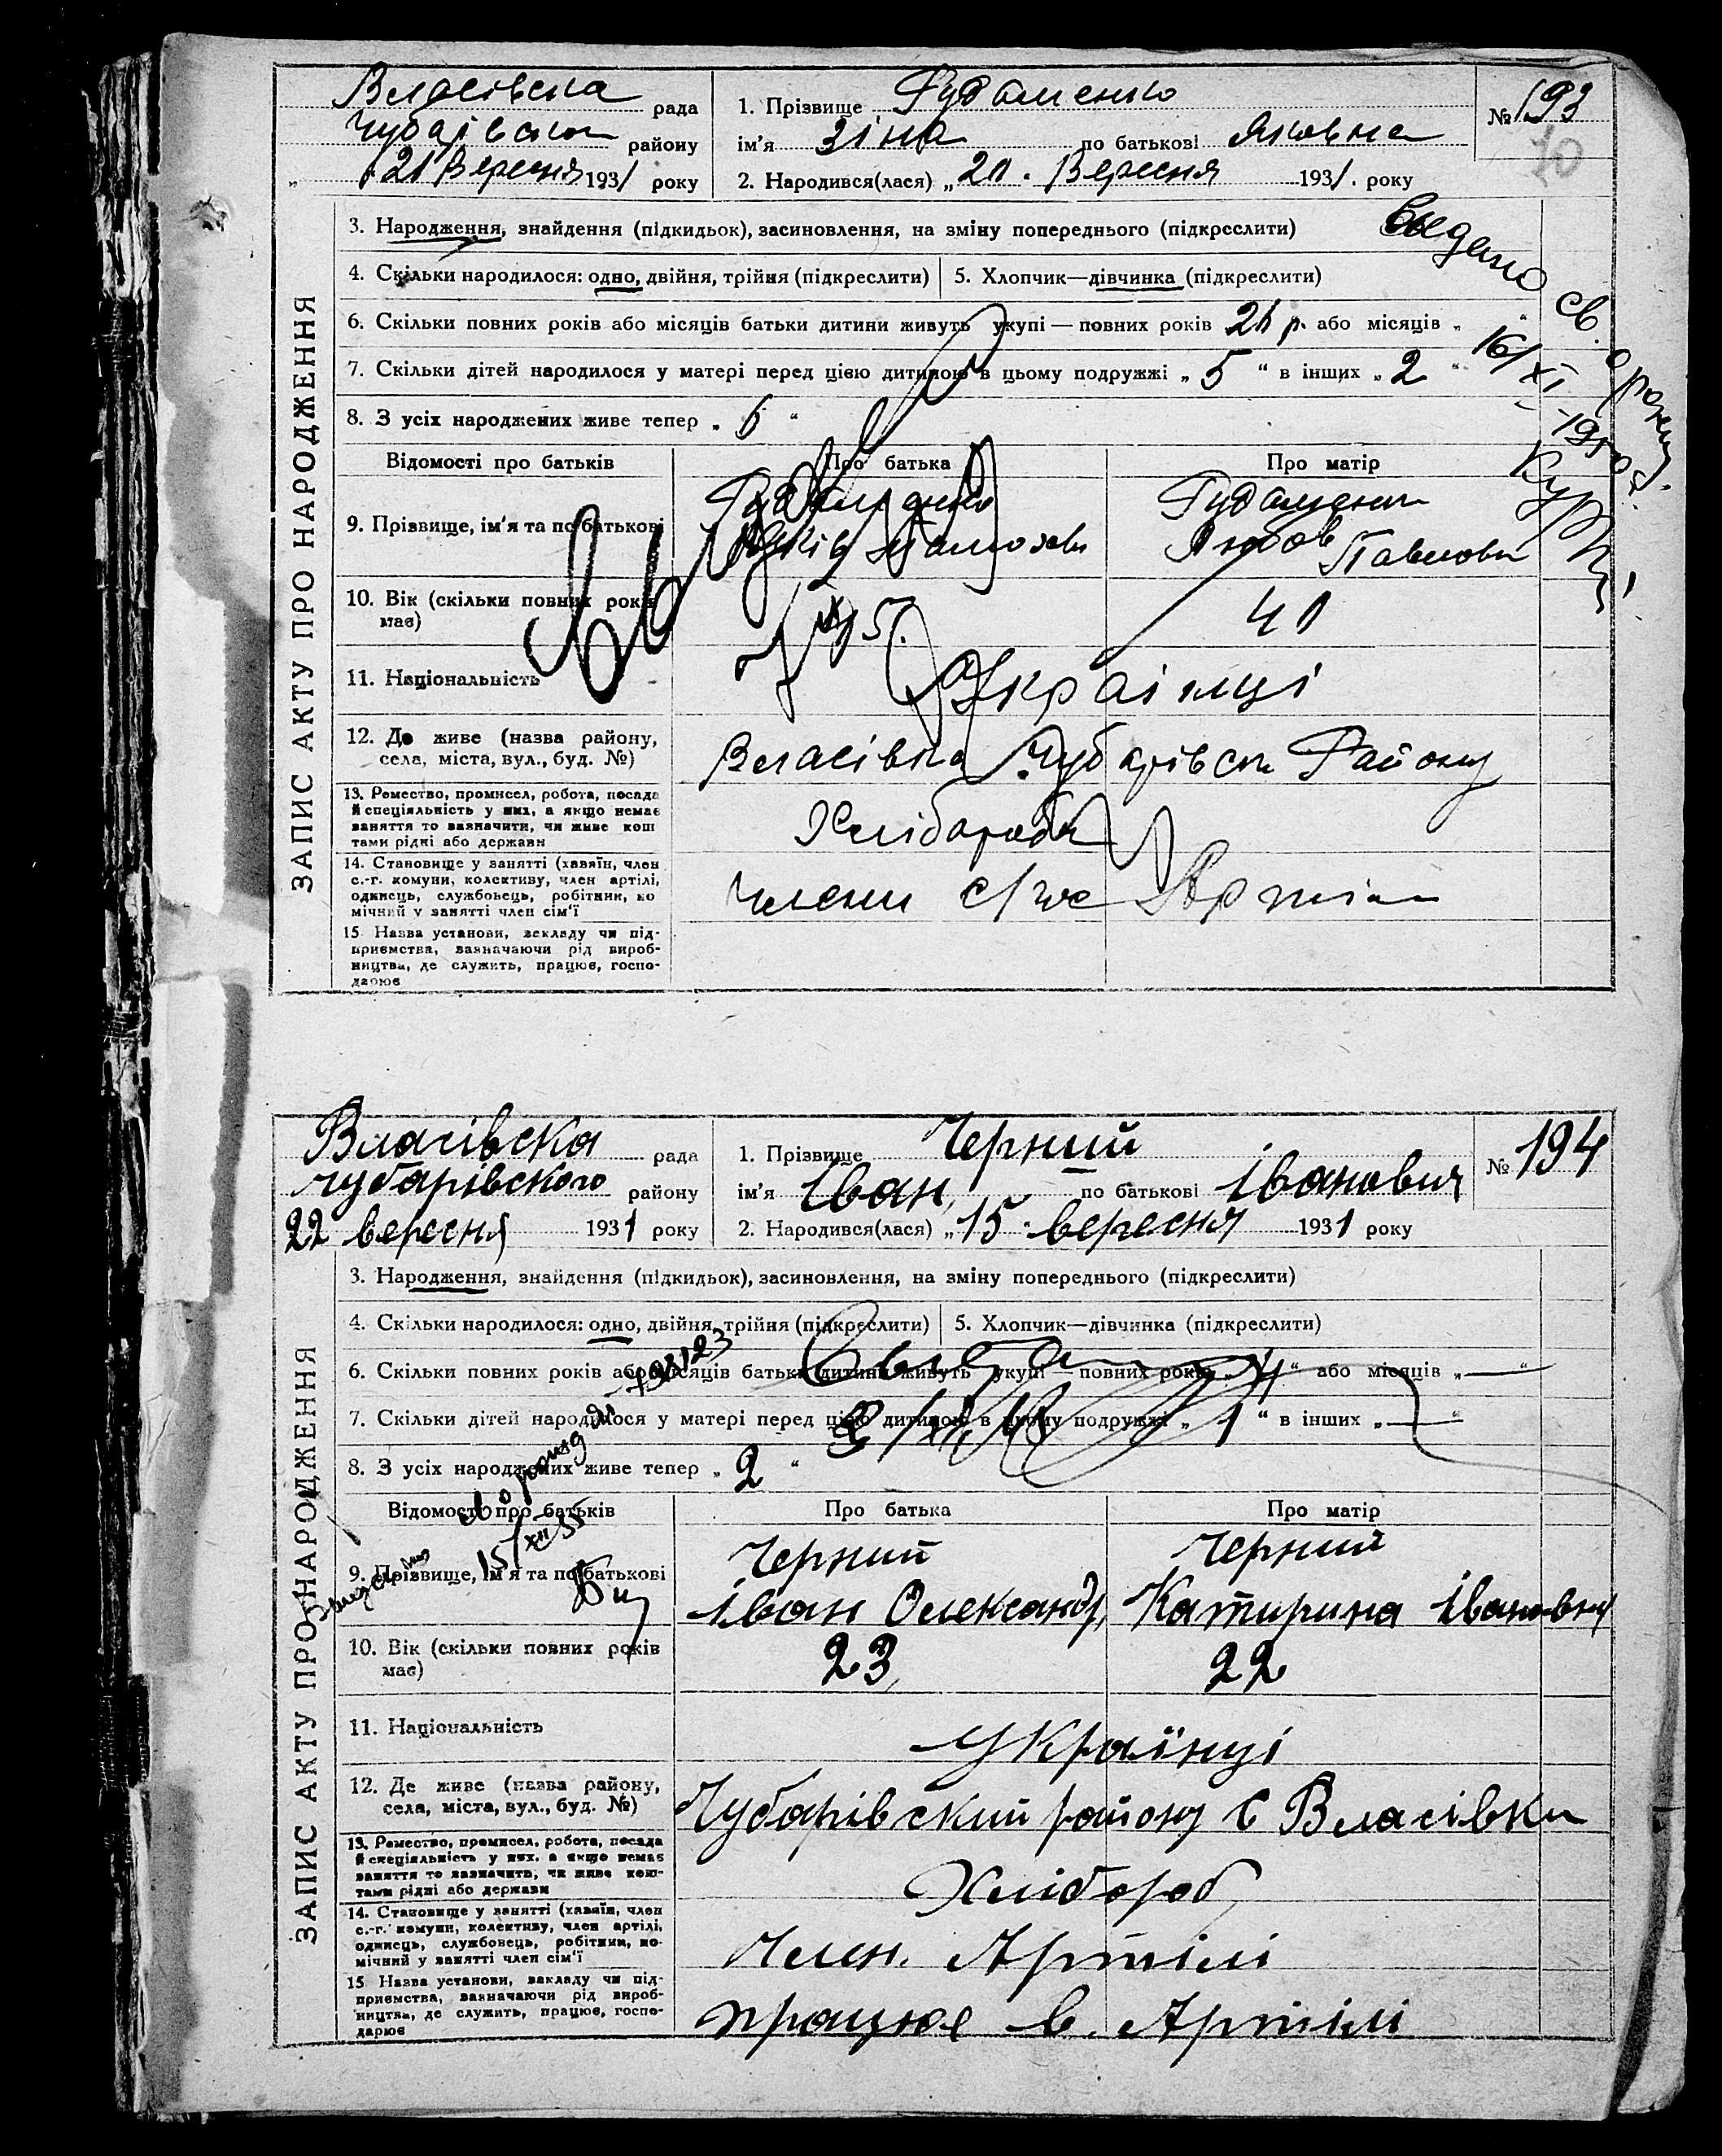 Власівска рада
Чубарівськ району
21 Вересня 1931 року
1. Прізвище
ім'я Зіна по батькові Яковна
2. Народився(лася) „ Вересня 1931. року
№ 193
10
ЗАПИС АКТУ ПРО НАРОДЖЕННЯ
3. Народження, знайдення (підкидьок), засиновлення, на зміну попереднього (підкреслити)
4. Скільки народилося: одно, двійня, трійня (підкреслити) 5. Хлопчик—дівчинка (підкреслити)
6. Скільки повних років або місяців батьки дитини живуть укупі — повних років р. або місяців „ “
7. Скільки дітей народилося у матері перед цією дитиною в цьому подружжі „ 5 “ в інших „ 2 “
8. З усіх народжених живе тепер „ “
Выдано св. о рожд.
16/XI
Відомості про батьків Про батька Про матір
9. Прізвище, ім'я та по батькові
Любов Павловн
10. Вік (скільки повних років має)
11. Національність Украінці
12. Де живе (назва району, села, міста, вул., буд. №) Власівка Чубарівськ Району
13. Ремество, промисел, робота, посада й спеціяльність у них, а якщо немає заняття то зазначити, чи живе коштами рідні або держави Хлібороби
14. Становище у занятті (хазяїн, член с.-г. комуни, колективу, член артілі, одинець, службовець, робітник, помічний у занятті член сім'ї Члени Артіли
15 Назва установи, закладу чи підприємства, зазначаючи рід виробництва, де служить, працює, господарює
Власівска рада
Чубарівского району
22 вересня 1931 року
1. Прізвище Черний
ім'я Іван по батькові Іванович
2. Народився(лася) „15 вересня 1931 року
№ 194
ЗАПИС АКТУ ПРО НАРОДЖЕННЯ
3. Народження, знайдення (підкидьок), засиновлення, на зміну попереднього (підкреслити)
4. Скільки народилося: одно, двійня, трійня (підкреслити) 5. Хлопчик—дівчинка (підкреслити)
6. Скільки повних років або місяців батьки дитини живуть укупі — повних років „ 4 “ або місяців „ — “
7. Скільки дітей народилося у матері перед цією дитиною в цьому подружжі „ 1 “ в інших „ — “
8. З усіх народжених живе тепер „ 2 “
15/XII 55
Відомості про батьків Про батька Про матір
9. Прізвище, ім'я та по батькові Черний Черний
Іван Олександр Катирина Івановна
10. Вік (скільки повних років має) 23 22
11. Національність Украінці
12. Де живе (назва району, села, міста, вул., буд. №) Чубарівский району с Власівки
13. Ремество, промисел, робота, посада й спеціяльність у них, а якщо немає заняття то зазначити, чи живе коштами рідні або держави Хлібороб
14. Становище у занятті (хазяїн, член с.-г. комуни, колективу, член артілі, одинець, службовець, робітник, помічний у занятті член сім'ї Член. Артілі
15 Назва установи, закладу чи підприємства, зазначаючи рід виробництва, де служить, працює, господарює працює в Артілі